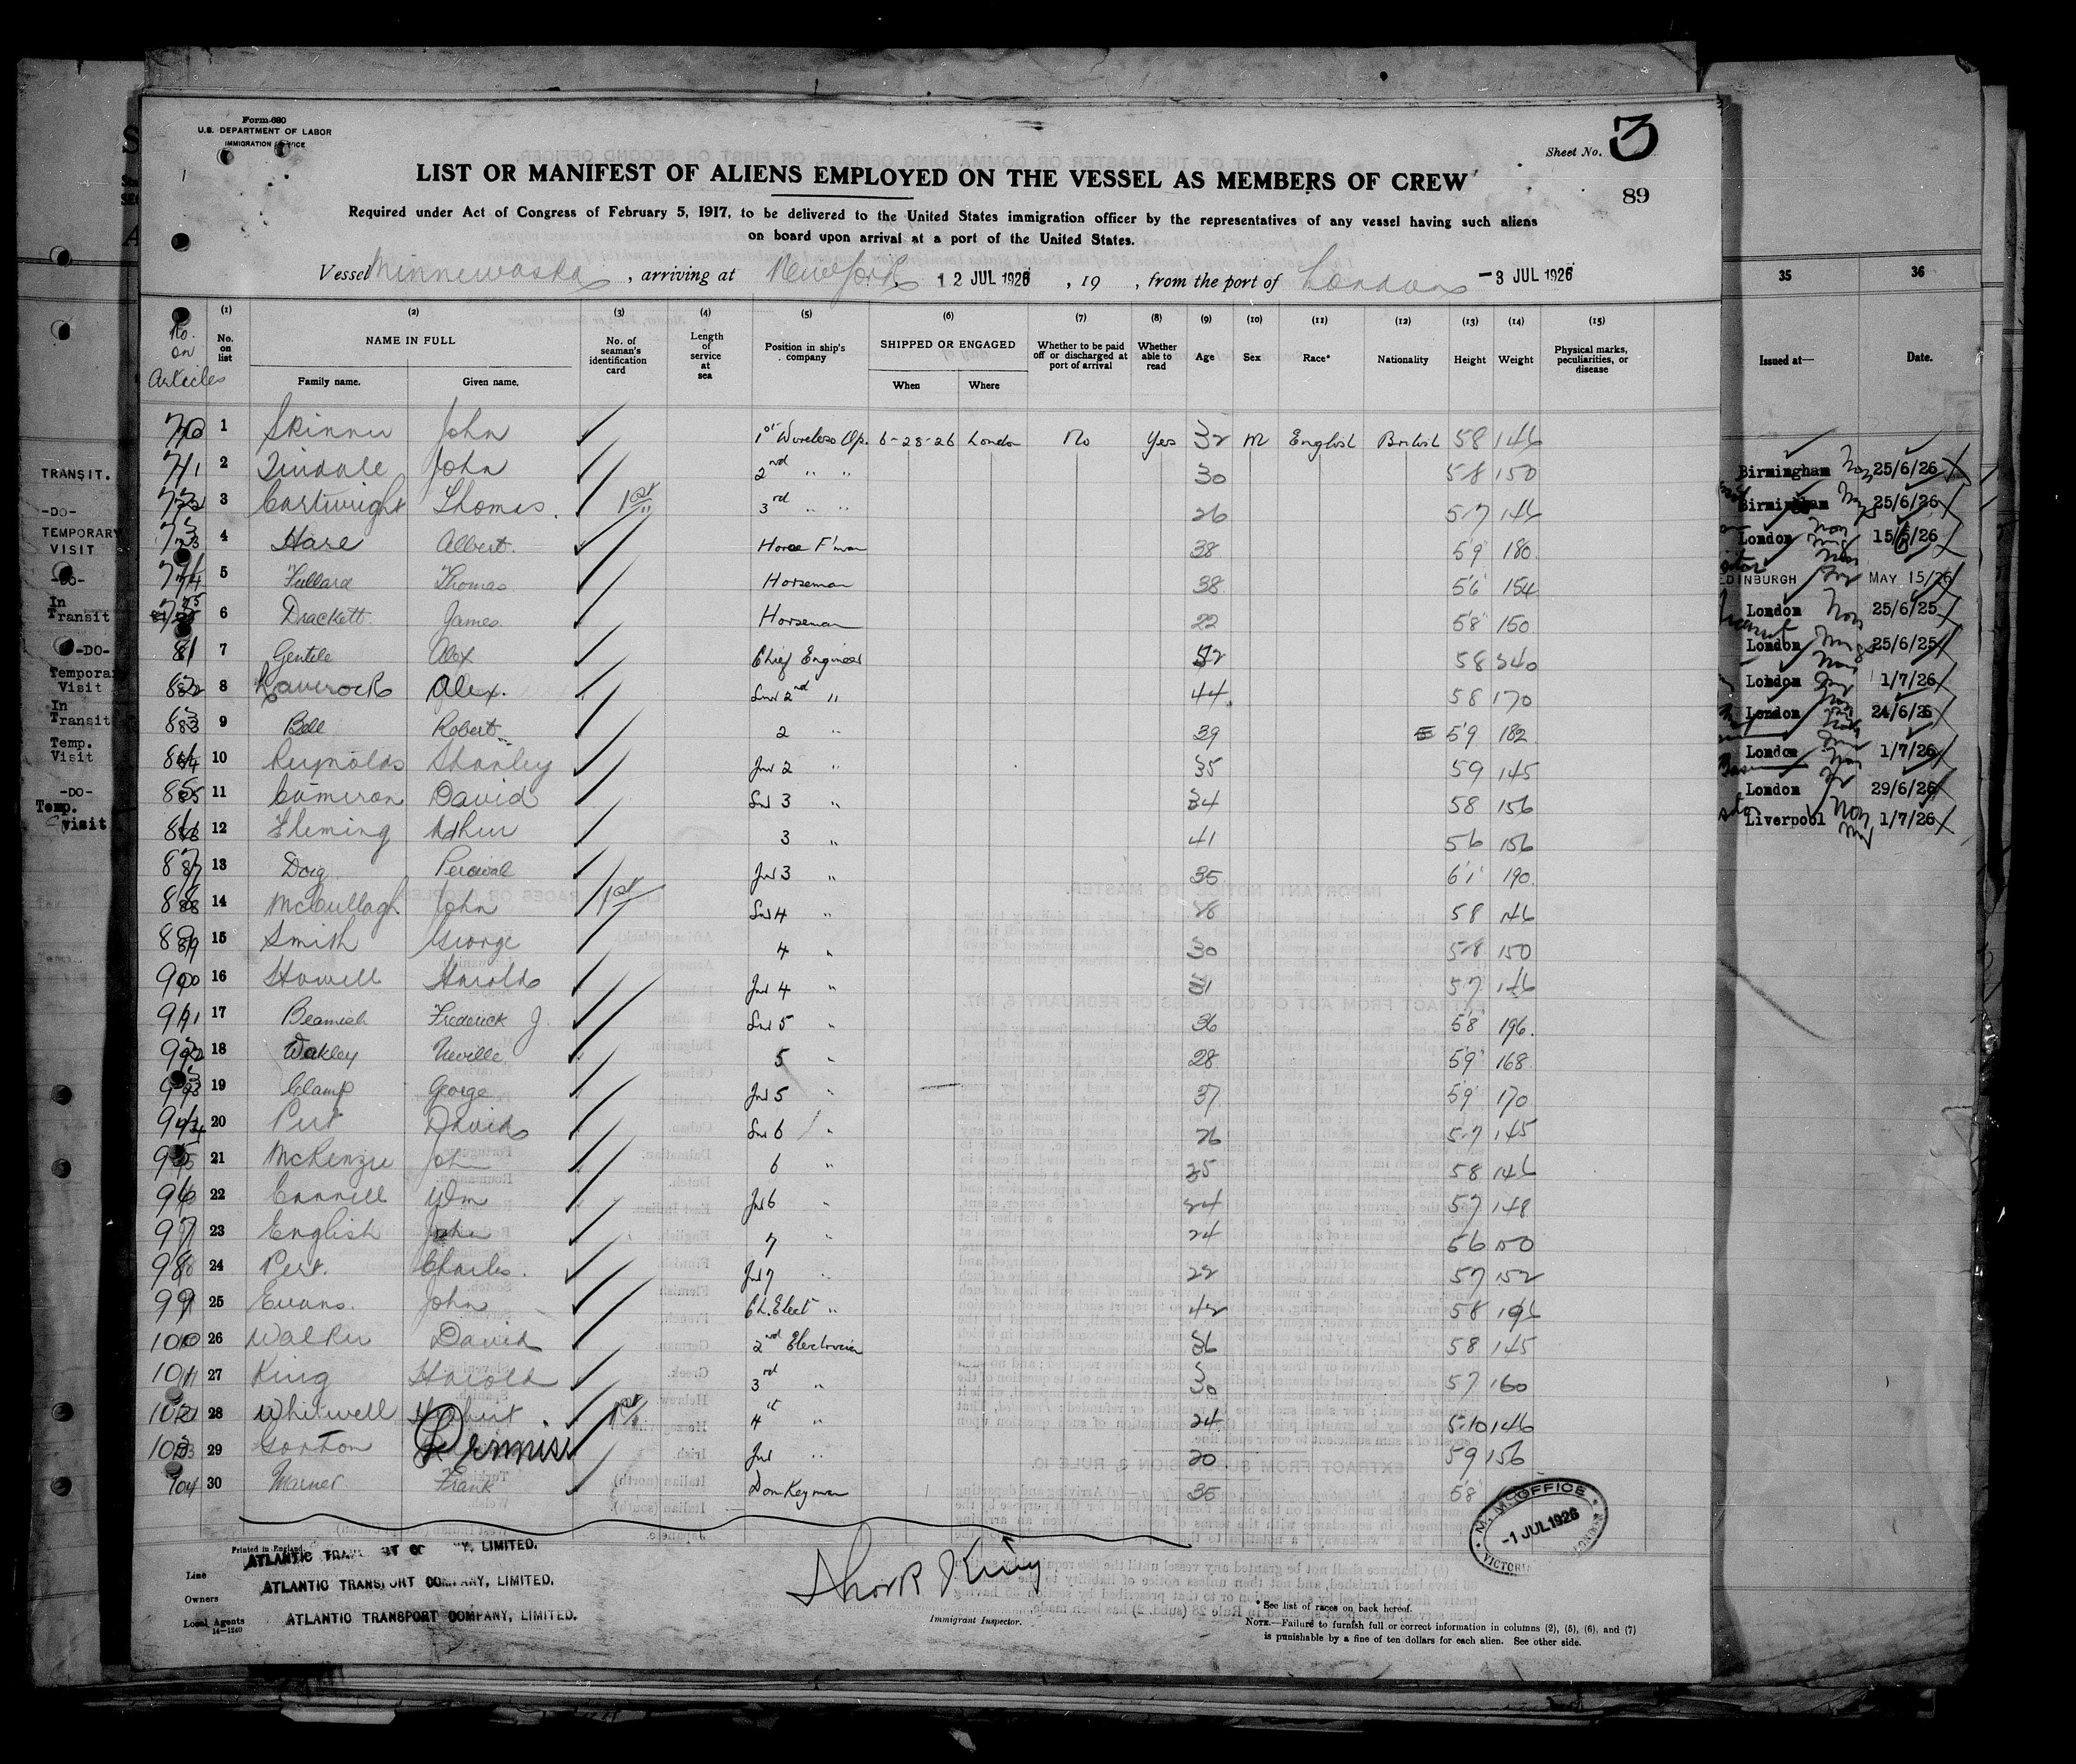 Form 680
U.S. DEPARTMENT OF LABOR
IMMIGRATION SERVICE
Sheet No. 3
89
LIST OR MANIFEST OF ALIENS EMPLOYED ON THE VESSEL AS MEMBERS OF CREW
Required under Act of Congress of February 5, 1917, to be delivered to the United States immigration officer by the representatives of any vessel having such aliens
on board upon arrival at a port of the United States.
Vessel Minnewaska, arriving at New York, 12 JUL 1926, 19 , from the port of London -3 JUL 1926
No. on Articles (1) No. on list (2) NAME IN FULL Family name. Given name. (3) No. of seaman's identification card (4) Length of service at sea (5) Position in ship's company (6) SHIPPED OR ENGAGED When Where (7) Whether to be paid off or discharged at port of arrival (8) Whether able to read (9) Age (10) Sex (11) Race* (12) Nationality (13) Height (14) Weight (15) Physical marks, peculiarities, or disease
1 Skinner John 1st Wireless Op. 6-28-26 London No Yes 32 M English British 58 146
71 2 Tindale John 2nd " " 30 5-8 150
72 3 Cartwright Thomas. 1st 3rd " " 26 5-7 146
73 4 Hare Albert. Horse F'man 38 5'9 180
74 5 Fullard Thomas Horseman 38 5'6 154
75 6 Drackett James Horseman 22 5'8 150
81 7 Gentle Alex Chief Engineer 58 240
82 8 Laverock Alex. Snr 2nd " 44 58 170
83 9 Bell Robert 2 " 39 5'9 182
84 10 Reynolds Stanley Jnr 2 " 35 59 145
85 11 Cameron David Snr 3 " 34 58 156
86 12 Fleming Arthur 3 " 41 56 156
87 13 Doig Percival Jnr 3 " 35 6'1 190
88 14 McCullagh John 1st Snr 4 " 58 146
89 15 Smith George 4 " 30 5-8 150
90 16 Howell Harold Jnr 4 " 31 5'7 146
91 17 Beamish Frederick J. Snr 5 " 36 5'8 196
92 18 Wakley Neville 5 " 28 5'9 168
93 19 Clamp George Jnr 5 " 37 5'9 170
94 20 Pert David Snr 6 " 26 5-7 145
95 21 McKenzie John 6 " 25 58 146
96 22 Wm Jnr 6 " 24 57 148
97 23 English John 7 " 24 56 150
98 24 Pert. Charles. Jnr 7 " 22 57 152
99 25 Evans. John Ch. Elect " 42 58 196
100 26 Walker David 2nd Electrician 36 58 145
101 27 King Harold 3rd " 30 57 160
102 28 Whitwell Herbert 1st 4th " 24 5-10 146
103 29 Gorton Dennis Jnr " 20 59 156
104 30 Frank Donkeyman 35 5'8
M. M. OFFICE
-1 JUL 1926
VICTORIA
Printed in England.
Line ATLANTIC TRANSPORT COMPANY, LIMITED.
Owners ATLANTIC TRANSPORT COMPANY, LIMITED.
Local Agents ATLANTIC TRANSPORT COMPANY, LIMITED.
14—1240
King
Immigrant Inspector.
* See list of races on back hereof.
NOTE.—Failure to furnish full or correct information in columns (2), (5), (6), and (7)
is punishable by a fine of ten dollars for each alien. See other side.
TRANSIT.
-DO-
TEMPORARY
VISIT
-DO-
In
Transit
-DO-
Temporary
Visit
In
Transit
Temp.
Visit
-DO-
Temp.
Visit
35 36
Issued at— Date.
Birmingham 25/6/26
Birmingham 25/6/26
London 15/6/26
EDINBURGH MAY 15/26
London 25/6/25
London 25/6/25
London 1/7/26
London 24/6/26
London 1/7/26
London 29/6/26
Liverpool 1/7/26